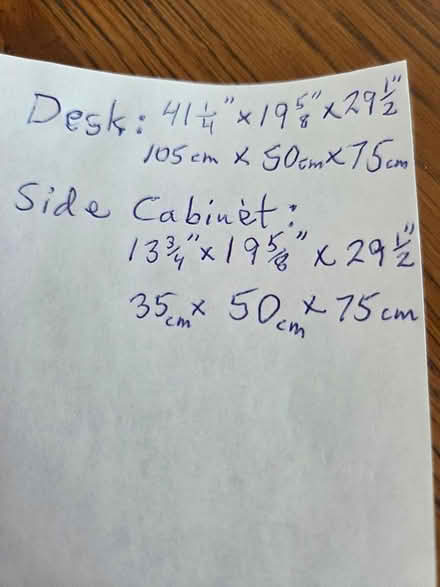 Desk: 41 1/4" x 19 5/8" x 29 1/2"
105 cm x 50 cm x 75 cm
Side Cabinet:
13 3/4" x 19 5/8" x 29 1/2"
35 cm x 50 cm x 75 cm